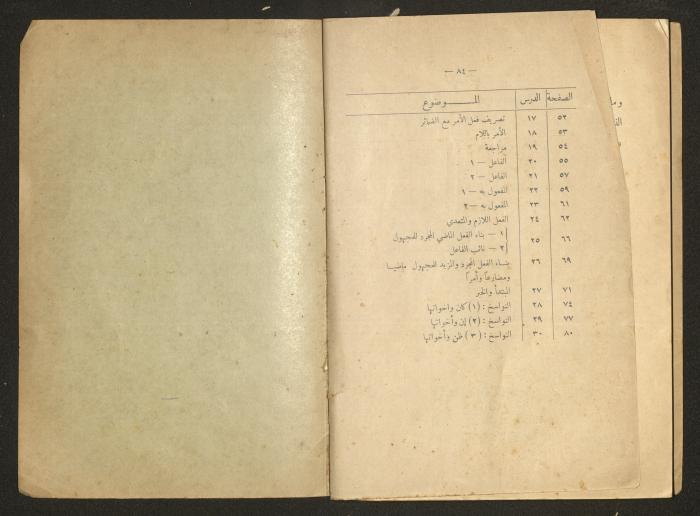 — ٨٤ —
الصفحة الدرس المـــــوضوع
٥٢ ١٧ تصريف فعل الأمر مع الضمائر
٥٣ ١٨ الأمر باللام
٥٤ ١٩ مراجعة
٥٥ ٢٠ الفاعل — ١
٥٧ ٢١ الفاعل — ٢
٥٩ ٢٢ المفعول به — ١
٦١ ٢٣ المفعول به — ٢
٦٢ ٢٤ الفعل اللازم والمتعدي
٦٦ ٢٥ ١ — بناء الفعل الماضي المجرد للمجهول
٢ — نائب الفاعل
٦٩ ٢٦ بنـاء الفعل المجرد والمزيد للمجهول ماضيـا
ومضارعاً وأمراً
٧١ ٢٧ المبتدأ والخبر
٧٤ ٢٨ النواسخ : (١) كان واخواتها
٧٧ ٢٩ النواسخ : (٢) إن وأخواتها
٨٠ ٣٠ النواسخ : (٣) ظن وأخواتها
وما